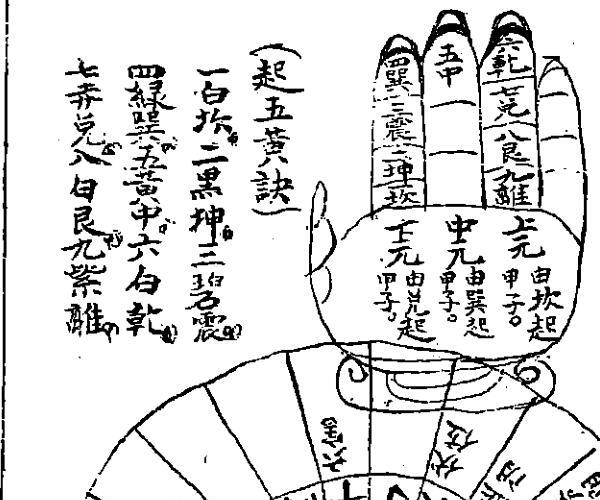 （起五黃訣）
一白坎二黑坤三碧震
四綠巽五黃中六白乾
七赤兌八白艮九紫離
六乾
七兌
八艮
九離
五中
四巽
三震
二坤
坎
上元
由坎起
甲子。
中元
由巽起
甲子。
下元
由兌起
甲子。
六害
伏位